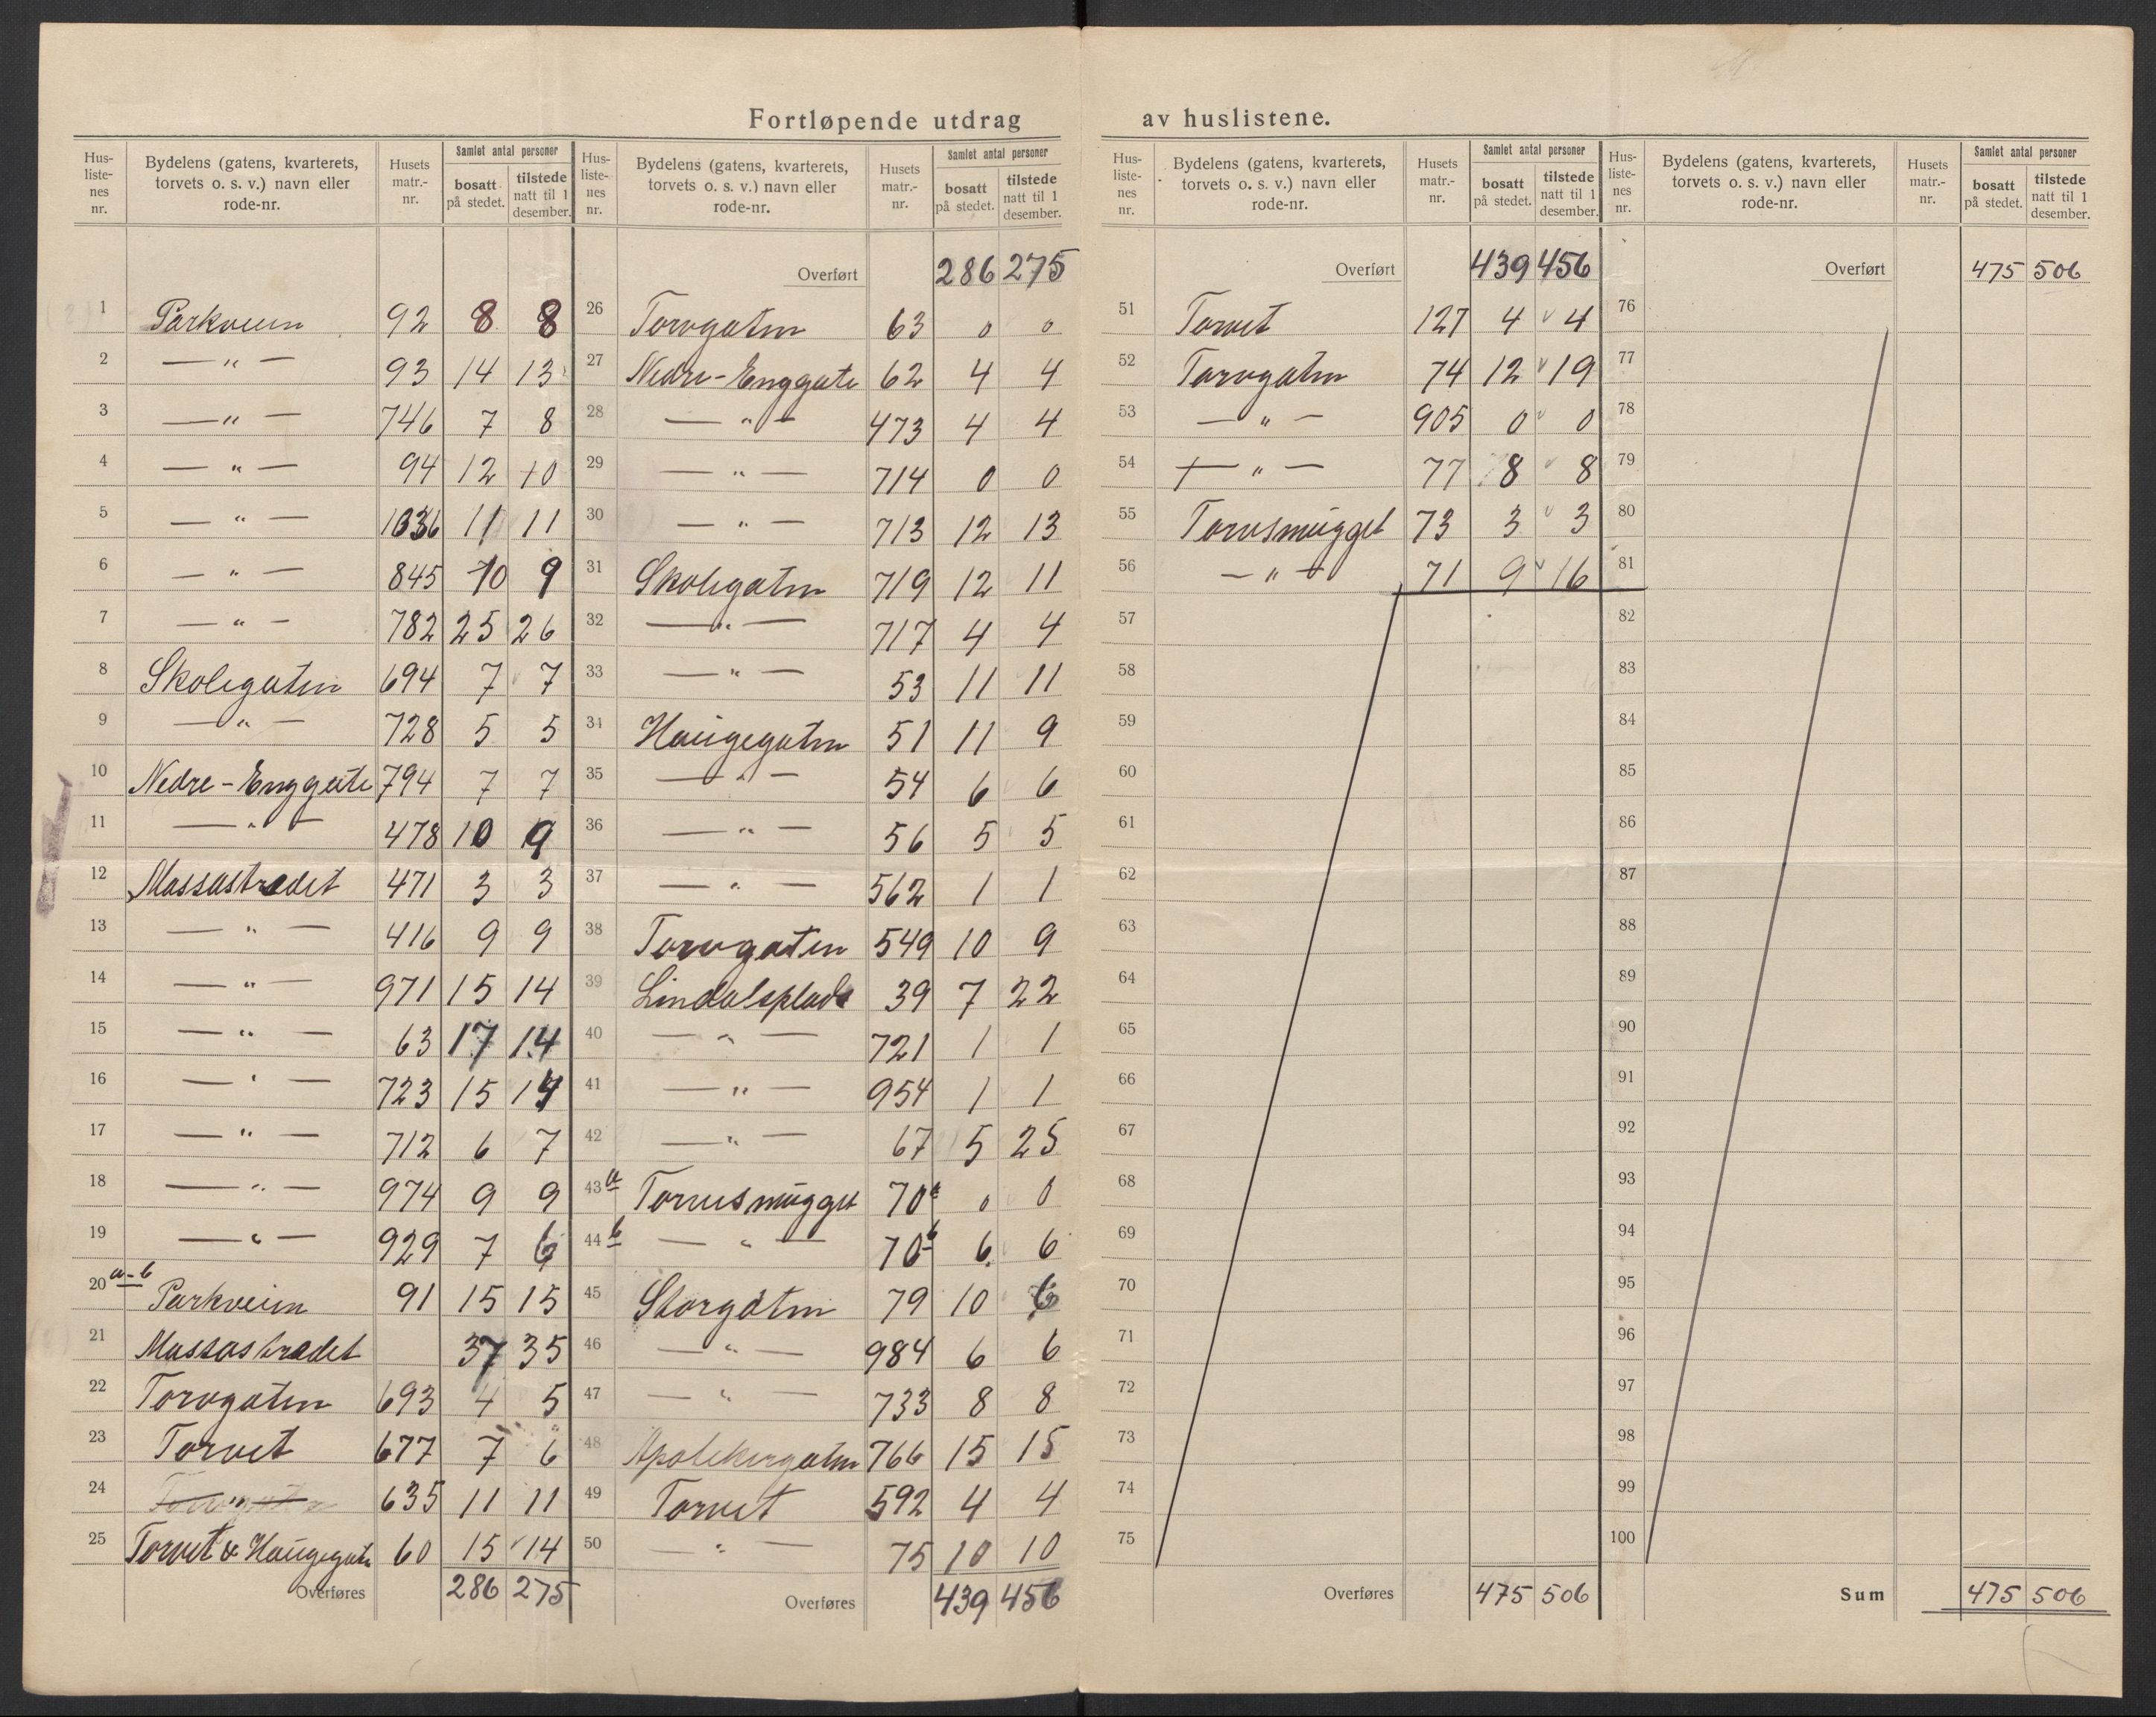 Fortløpende utdrag av huslistene.
Hus-listenes nr. Bydelens (gatens, kvarterets, torvets o. s. v.) navn eller rode-nr. Husets matr.-nr. Samlet antal personer bosatt på stedet. tilstede natt til 1 desember.
1 Parkveien 92 8 8
2 — " — 93 14 13
3 — " — 746 7 8
4 — " — 94 12 10
5 — " — 1036 11 11
6 — " — 845 10 9
7 — " — 782 25 26
8 Skolegaten 694 7 7
9 — " — 728 5 5
10 Nedre-Enggate 794 7 7
11 — " — 478 10 9
12 Massastredet 471 3 3
13 — " — 416 9 9
14 — " — 971 15 14
15 — " — 63 17 14
16 — " — 723 15 14
17 — " — 712 6 7
18 — " — 974 9 9
19 — " — 929 7 6
20 a-b Parkveien 91 15 15
21 Massastredet 37 35
22 Torvgaten 693 4 5
23 Torvet 677 7 6
24 Torvgaten 635 11 11
25 Torvet & Haugegate 60 15 14
Overføres 286 275
Hus-listenes nr. Bydelens (gatens, kvarterets, torvets o. s. v.) navn eller rode-nr. Husets matr.-nr. Samlet antal personer bosatt på stedet. tilstede natt til 1 desember.
Overført 286 275
26 Torvgaten 63 0 0
27 Nedre-Enggate 62 4 4
28 — " — 473 4 4
29 — " — 714 0 0
30 — " — 713 12 13
31 Skolegaten 719 12 11
32 — " — 717 4 4
33 — " — 53 11 11
34 Haugegaten 51 11 9
35 — " — 54 6 6
36 — " — 56 5 5
37 — " — 562 1 1
38 Torvgaten 549 10 9
39 Lindalsplads 39 7 22
40 — " — 721 1 1
41 — " — 954 1 1
42 — " — 67 5 25
43 a Torvesmugget 70 a 0 0
44 b — " — 70 b 6 6
45 Storgaten 79 10 6
46 — " — 984 6 6
47 — " — 733 8 8
48 Apotekergaten 766 15 15
49 Torvet 592 4 4
50 — " — 75 10 10
Overføres 439 456
Hus-listenes nr. Bydelens (gatens, kvarterets, torvets o. s. v.) navn eller rode-nr. Husets matr.-nr. Samlet antal personer bosatt på stedet. tilstede natt til 1 desember.
Overført 439 456
51 Torvet 127 4 4
52 Torvgaten 74 12 19
53 — " — 905 0 0
54 — " — 77 8 8
55 Torvesmugget 73 3 3
56 — " — 71 9 16
57
58
59
60
61
62
63
64
65
66
67
68
69
70
71
72
73
74
75
Overføres 475 506
Hus-listenes nr. Bydelens (gatens, kvarterets, torvets o. s. v.) navn eller rode-nr. Husets matr.-nr. Samlet antal personer bosatt på stedet. tilstede natt til 1 desember.
Overført 475 506
76
77
78
79
80
81
82
83
84
85
86
87
88
89
90
91
92
93
94
95
96
97
98
99
100
Sum 475 506